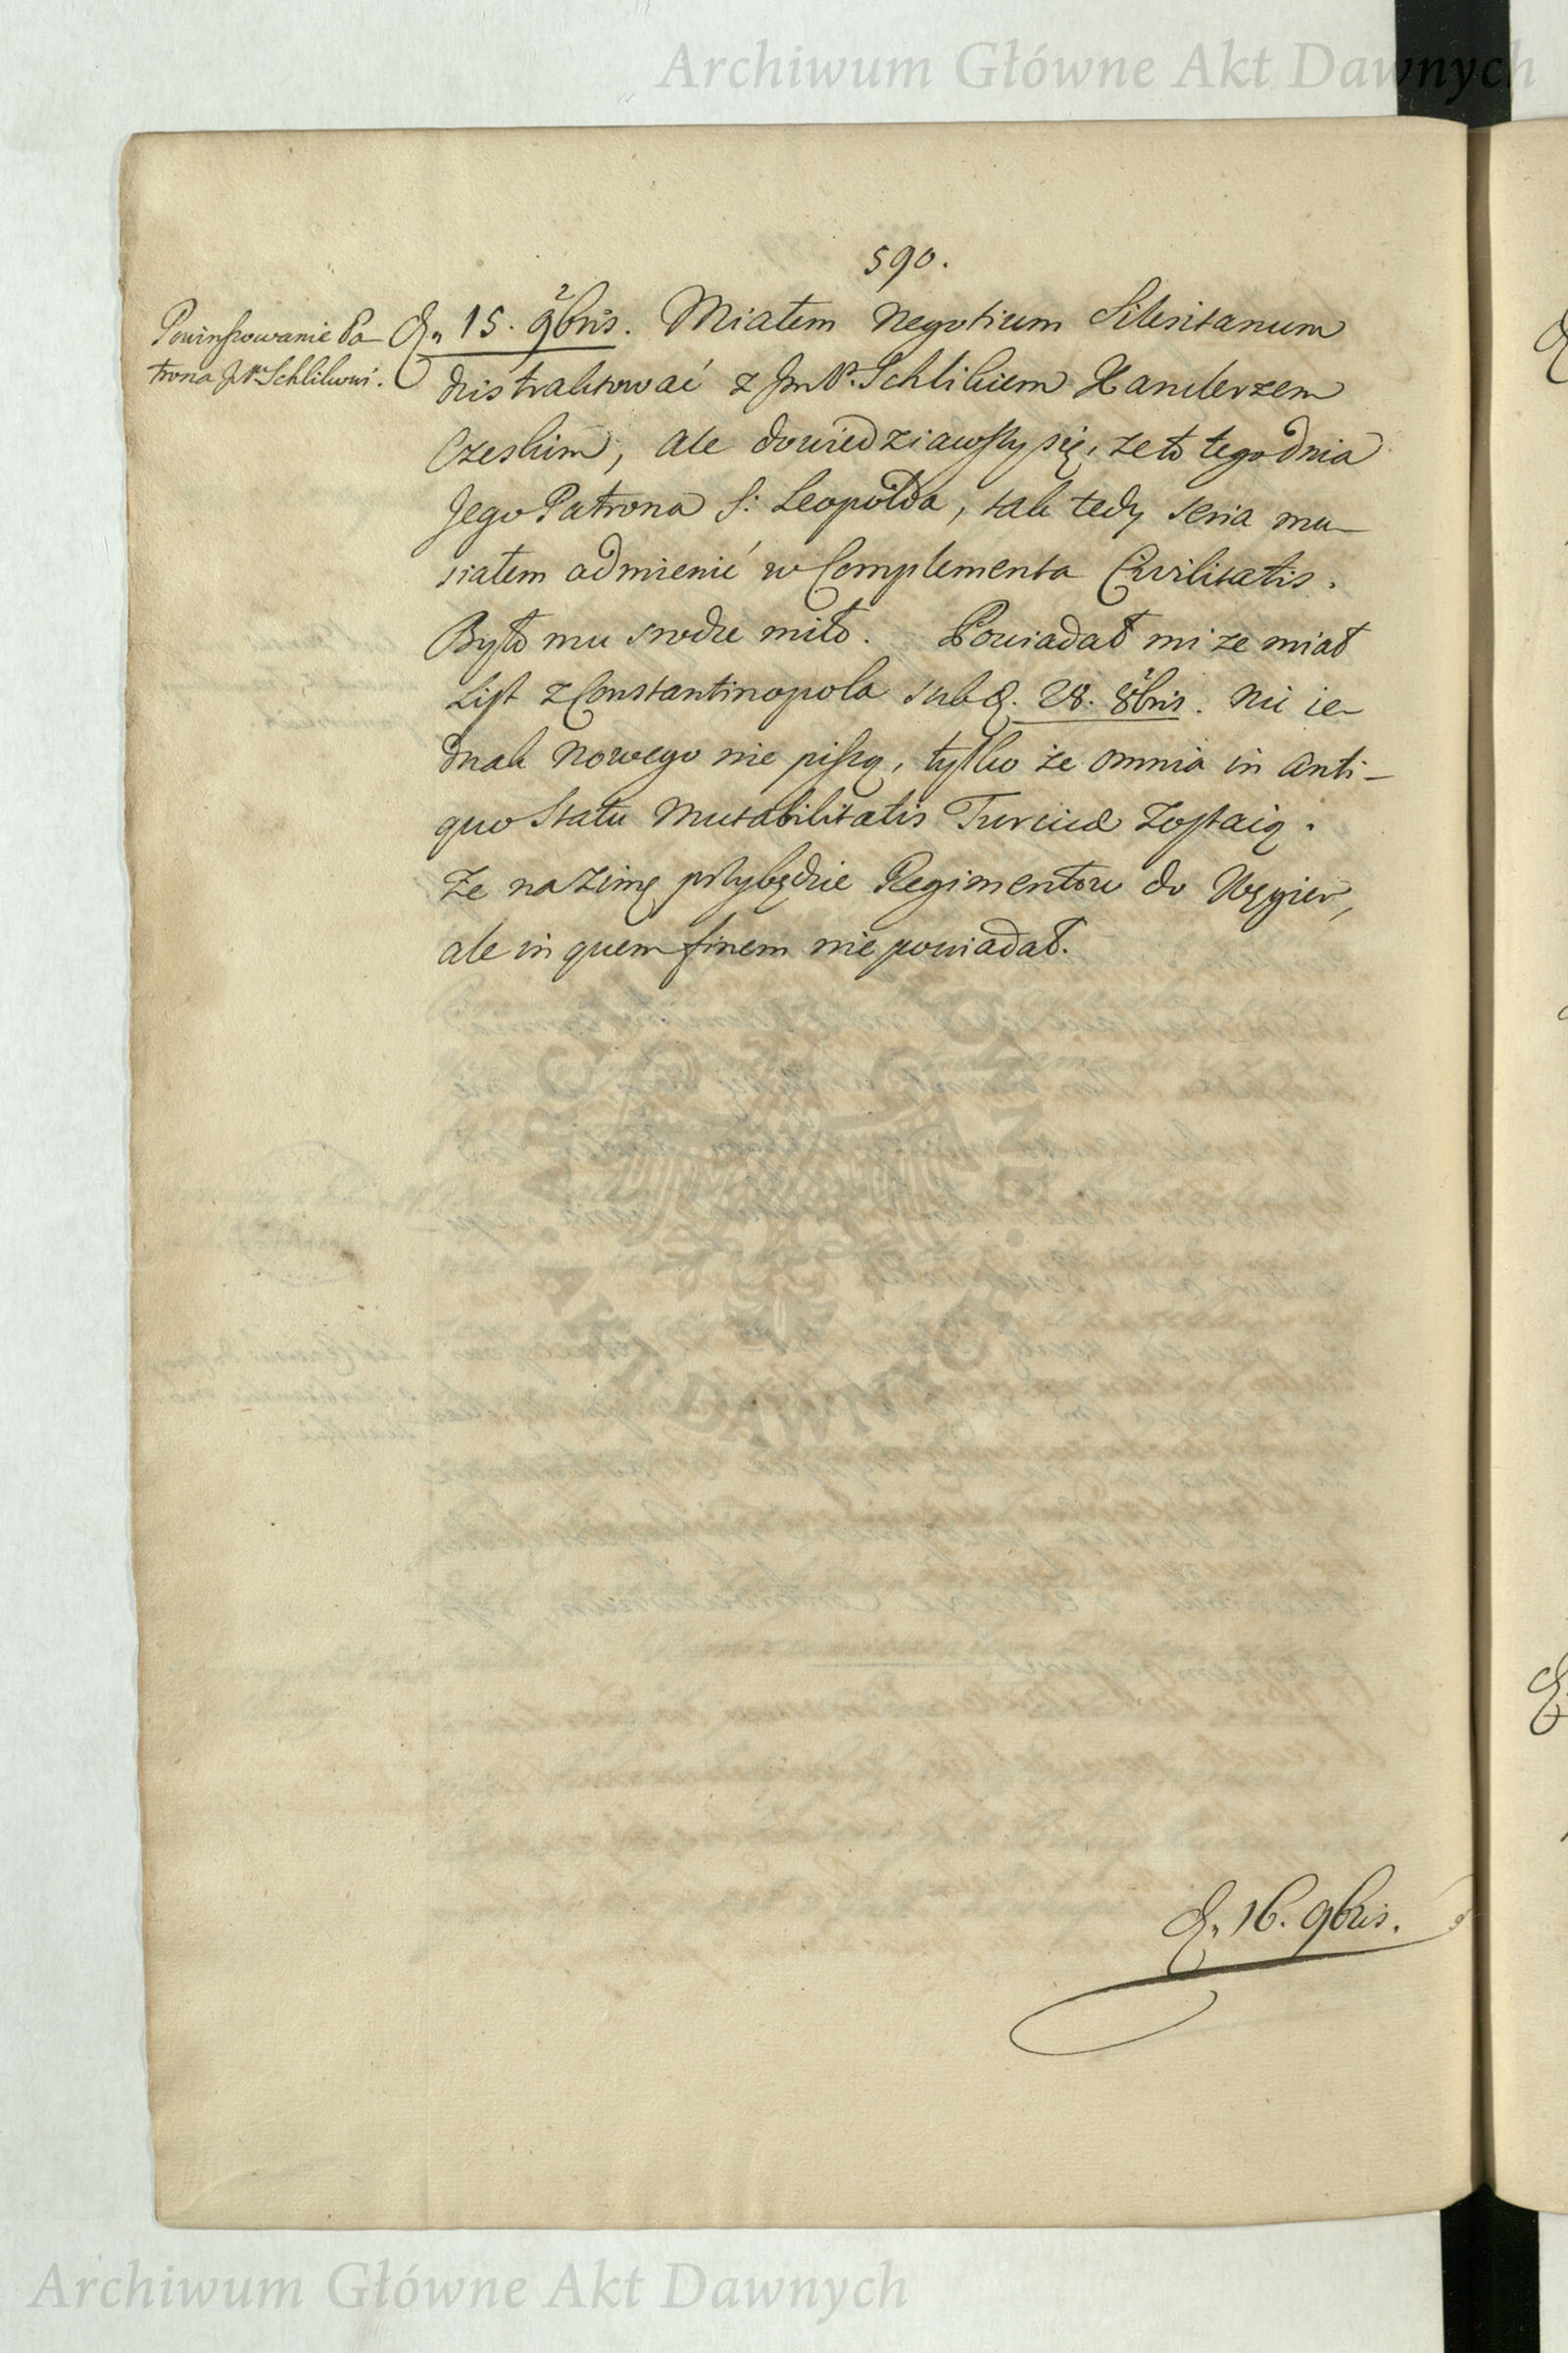 Archiwum Główne Akt Dawnych
590.
Powinszowanie Pa-
trona JP. Schlikowi.
D. 15. 9bris. Miałem Negotium Silesitanum
dzis traktować z JmP. Schlikiem Kanclerzem
Czeskim, ale dowiedziawszy się, że to tego dnia
Jego Patrona S: Leopolda, tak tedy seria mu-
siałem admienić w Complementa Civilitatis.
Było mu srodze miło. Powiadał mi ze miał
List z Constantinopola sub d. 28. 8bris. Nic ie-
dnak Nowego nie piszą, tylko że omnia in anti-
quo Statu Mutabilitatis Turcicæ zostaią.
Ze na Zimę przybędzie Regimentow do Węgier,
ale in quem finem nie powiadał.
ARCHIWUM GŁÓWNE
AKT DAWNYCH
D. 16. 9bris.
Archiwum Główne Akt Dawnych